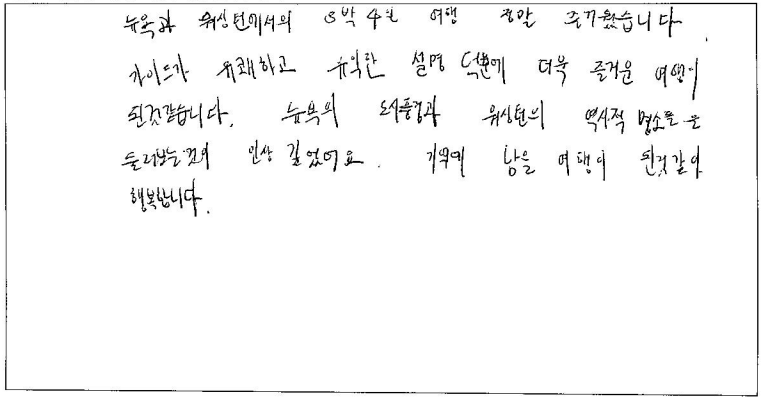 뉴욕과 워싱턴에서의 3박 4일 여행 정말 즐거웠습니다.
가이드가 유쾌하고 유익한 설명 덕분에 더욱 즐거운 여행이
된것같습니다. 뉴욕의 도시풍경과 워싱턴의 역사적 명소들을
둘러보는것이 인상 깊었어요. 기억에 남을 여행이 된것같아
행복합니다.